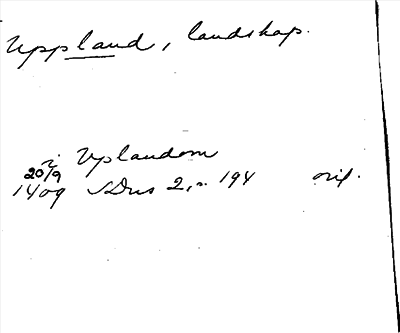 Uppland, landskap.
i Uplandom
20/9
1409 SDns 2, n. 194 orig.